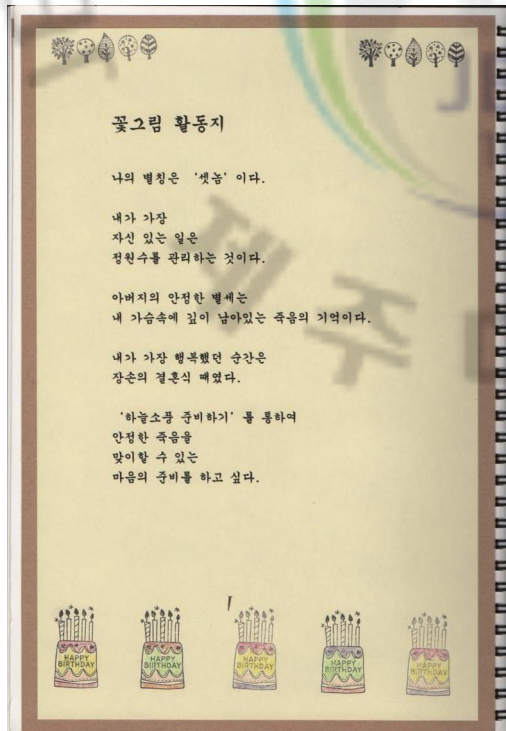 꽃그림 활동지
나의 별칭은 '셋놈' 이다.
내가 가장
자신 있는 일은
정원수를 관리하는 것이다.
아버지의 안정한 별세는
내 가슴속에 깊이 남아있는 죽음의 기억이다.
내가 가장 행복했던 순간은
장손의 결혼식 때였다.
'하늘소풍 준비하기' 를 통하여
안정한 죽음을
맞이할 수 있는
마음의 준비를 하고 싶다.
HAPPY BIRTHDAY
HAPPY BIRTHDAY
HAPPY BIRTHDAY
HAPPY BIRTHDAY
HAPPY BIRTHDAY